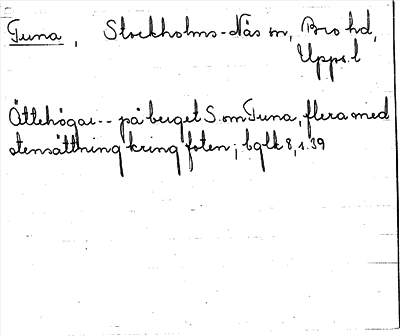 Tuna, Stockholms-Näs sn, Bro hd,
Uppl.
Ättehögar -- på berget S. om Tuna, flera med
stensättning kring foten; bglk 8, s. 39